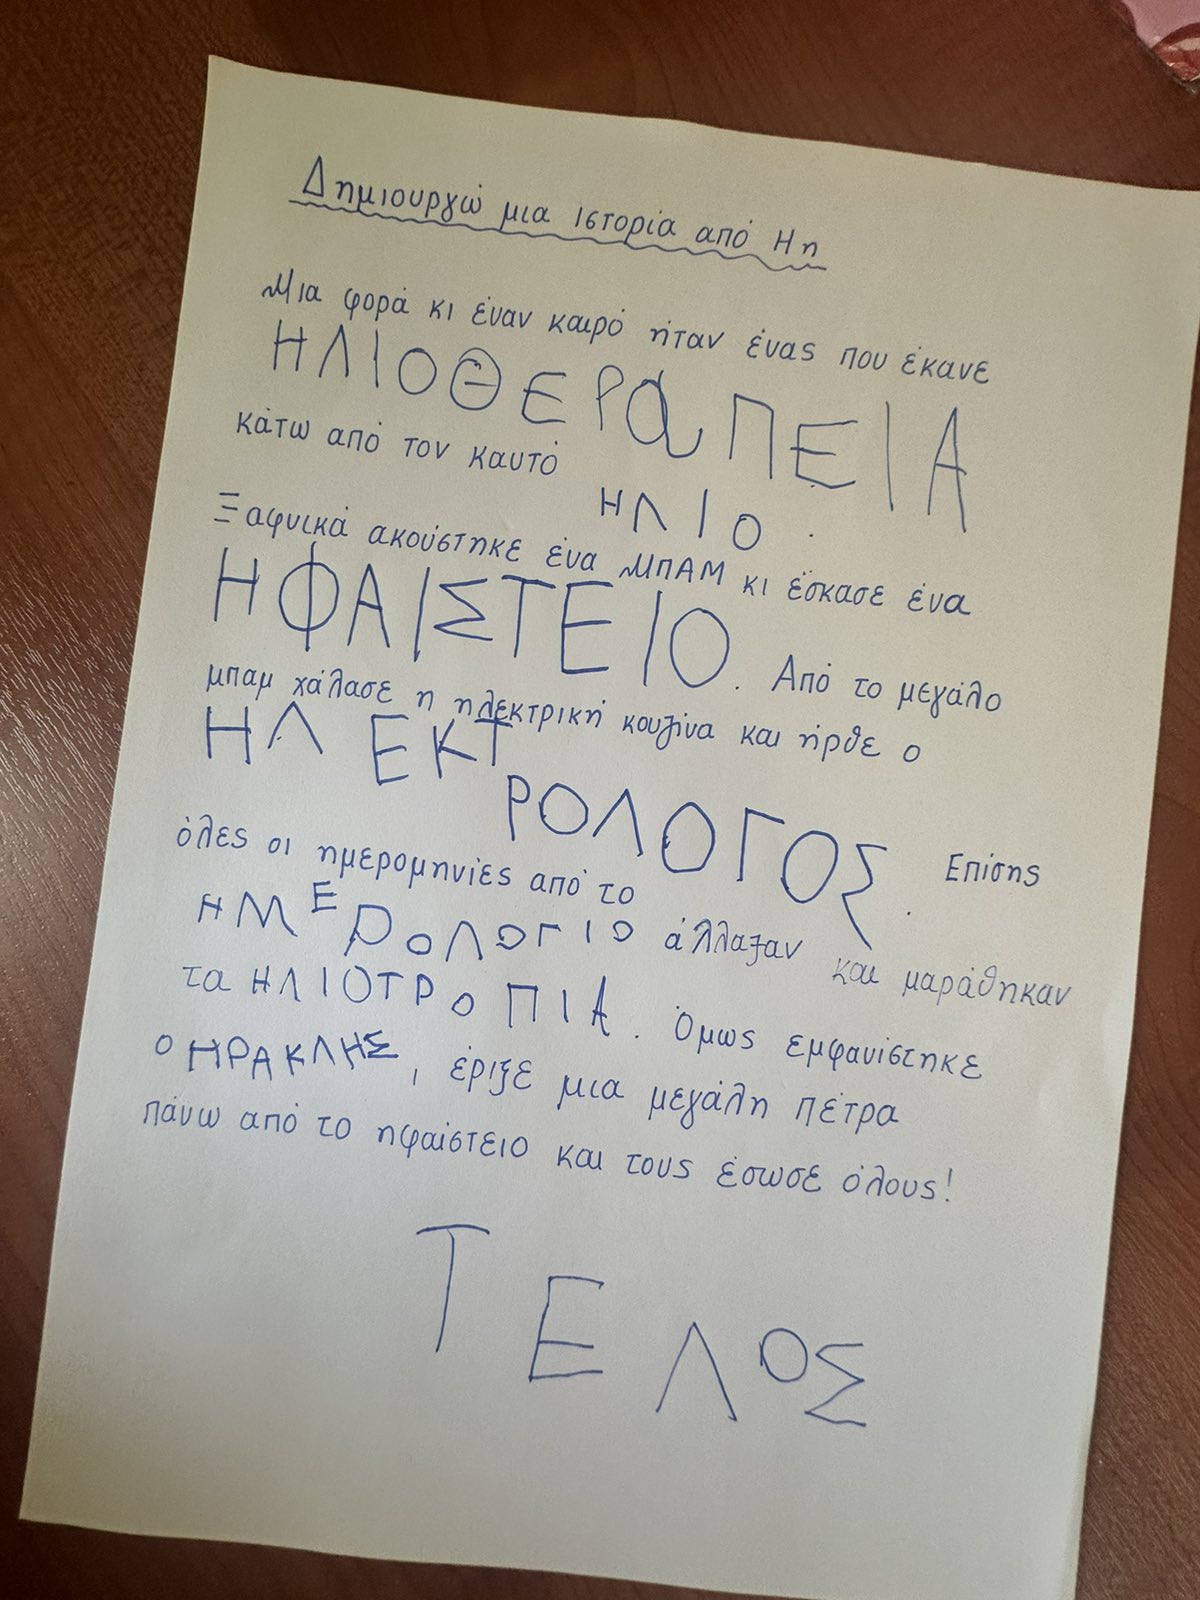 Δημιουργώ μια ιστορία από Η η
Μια φορά κι έναν καιρό ήταν ένας που έκανε
ΗΛΙΟΘΕΡαΠΕΙΑ
κάτω από τον καυτό
ΗΛΙΟ.
Ξαφνικά ακούστηκε ένα ΜΠΑΜ κι έσκασε ένα
ΗΦΑΙΣΤΕΙΟ. Από το μεγάλο
μπαμ χάλασε η ηλεκτρική κουζίνα και ήρθε ο
ΗΛΕΚΤ
ΡΟΛΟΓΟς. Επίσης
όλες οι ημερομηνίες από το
ΗΜΕΡΟΛΟΓΙΟ άλλαξαν και μαράθηκαν
τα ΗΛΙΟΤΡΟΠΙΑ. Όμως εμφανίστηκε
ο ΗΡΑΚΛΗΣ, έριξε μια μεγάλη πέτρα
πάνω από το ηφαίστειο και τους έσωσε όλους!
ΤΕΛΟΣ